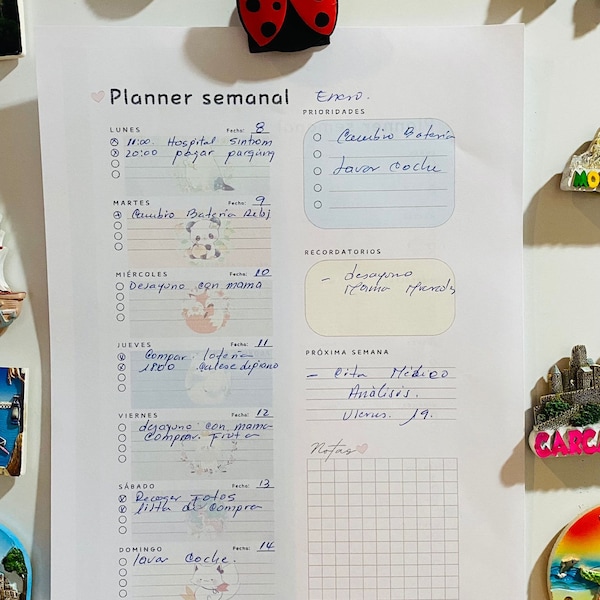 Planner semanal
Enero.
LUNES Fecha: 8
11:00. Hospital sintrom
20:00 pasar
MARTES Fecha: 9
Cambio Bateria Reloj
MIÉRCOLES Fecha: 10
Desayuno con mama
JUEVES Fecha: 11
Compar loteria
1800
VIERNES Fecha: 12
desayuno con mama
Comprar Fruta
SÁBADO Fecha: 13
Recoger Fotos
lista de Compra
DOMINGO Fecha: 14
lavar Coche.
PRIORIDADES
Cambio Bateria
lavar Coche
RECORDATORIOS
- desayuno
Mama
PRÓXIMA SEMANA
- Cita Médico
Análisis.
Viernes. 19.
Notas
MO
CARCA